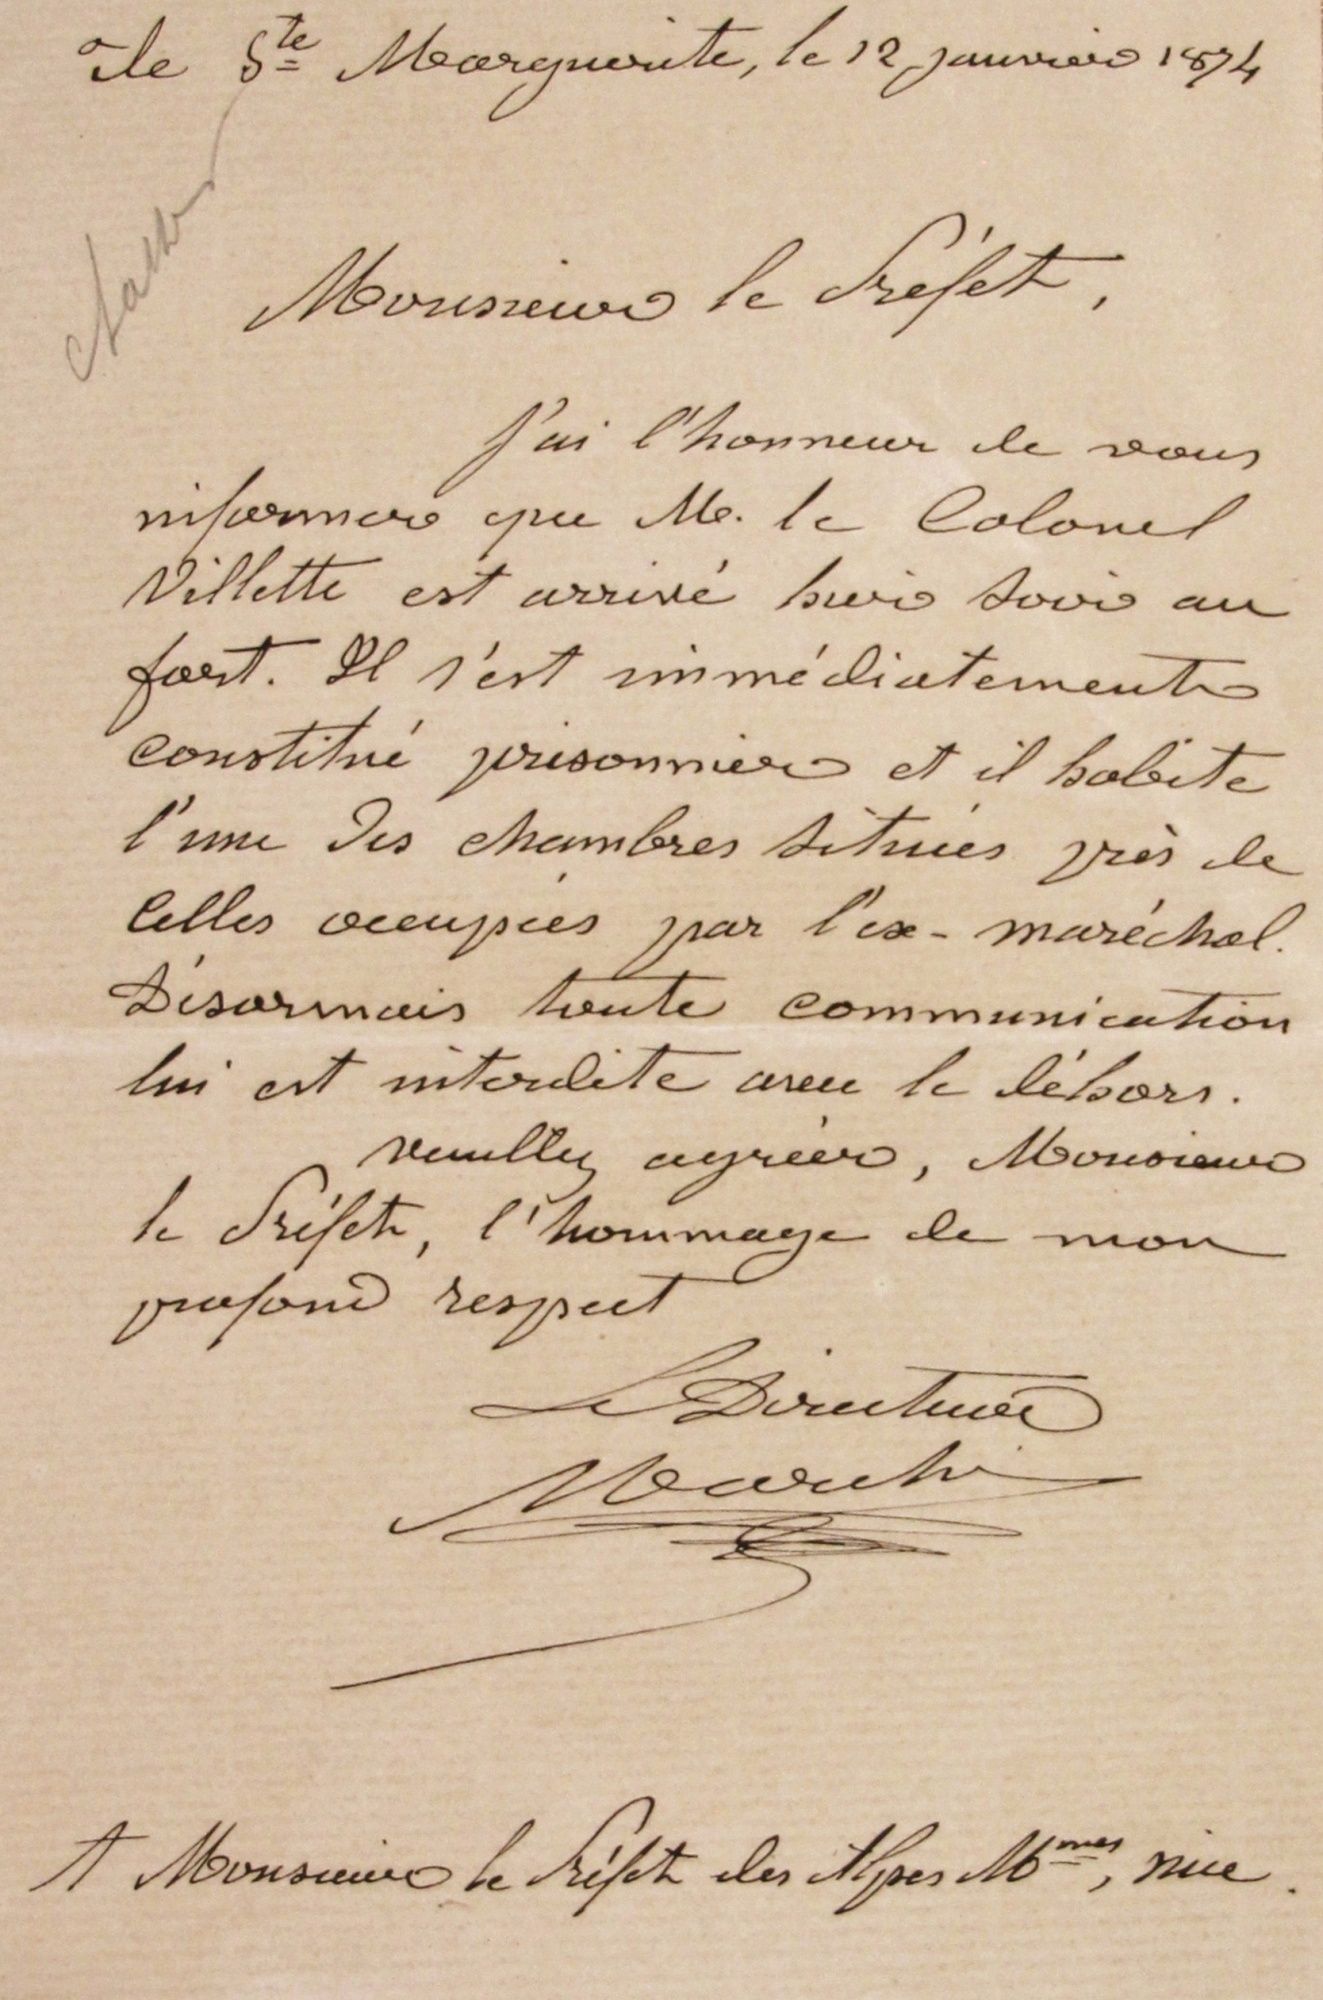 Ile Ste Marguerite, le 12 janvier 1874
Monsieur le Préfet,
J'ai l'honneur de vous
informer que M. le Colonel
Villette est arrivé hier soir au
fort. Il s'est immédiatement
constitué prisonnier et il habite
l'une des chambres situées près de
celles occupées par l'ex-maréchal.
Désormais toute communication
lui est interdite avec le déhors.
Veuillez agréer, Monsieur
le Préfet, l'hommage de mon
profond respect
Le Directeur
Marchi
A Monsieur le Préfet des Alpes Mmes, Nice.